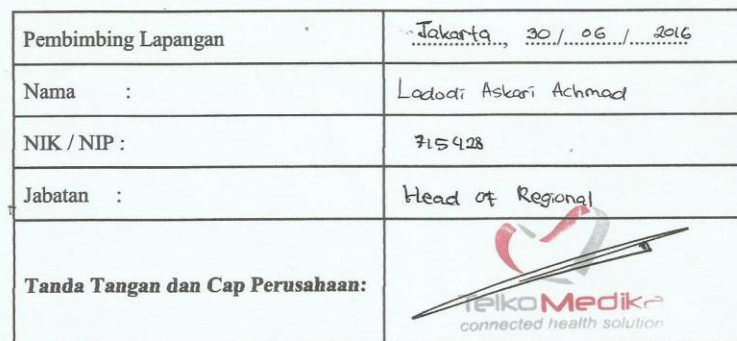 Pembimbing Lapangan Jakarta, 30 / 06 / 2016
Nama : Ladodi Askari Achmad
NIK / NIP : 715428
Jabatan : Head of Regional
Tanda Tangan dan Cap Perusahaan:
TelkoMedika
connected health solution